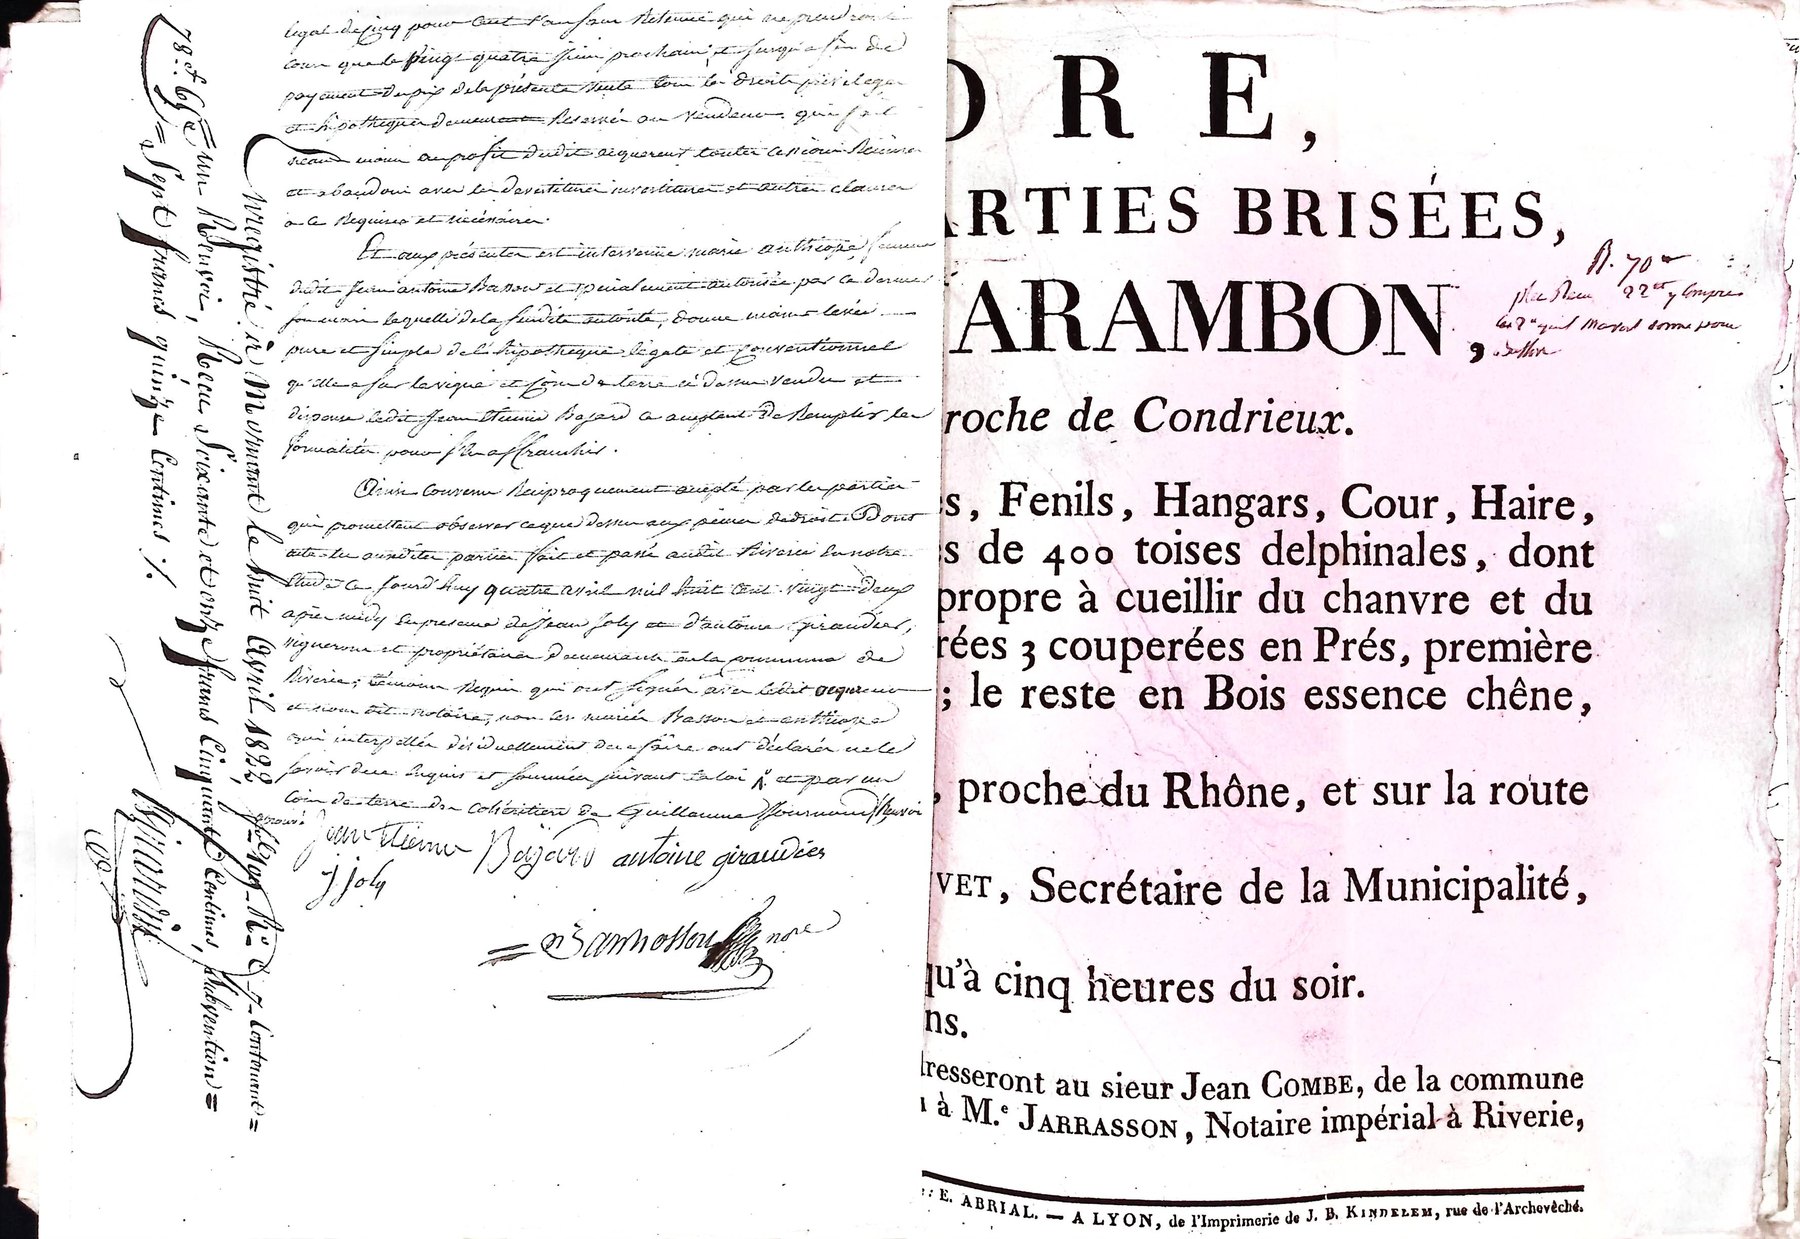 légal de cinq pour cent l'an sans Retenue qui ne prendront
cour que le vingt quatre juin prochain et jusqu'a fin de
payement du prix de la présente vente tous les droits privilèges
et hipothèques demeurent Réservés au vendeur qui fait
neanmoins au profit dudit acquereur toutes cessions Remises
et abandon avec les devestiture investiture et autres clauses
a ce Requises et nécéssaires.
Et aux présentes est intervenue marie anthiope femme
dudit Jean antoine Basson et spécialement autorisée par ce dernier
son mari laquelle de la susdite autorité, donne main levée
pure et simple de l'hipothèque légale et conventionnel
qu'elle a sur la vigne et coin de terre ci dessus vendus et
dispense ledit Jean Etienne Bajard ce aceptant de Remplir les
formalités pour s'en affranchir.
Ainsi convenu Réciproquement accepté par les parties
qui promettent observer ce que dessus aux peines de droit. Dont
acte les susdites parties fait et passé audit Riverie en notre
Etude ce jourd'huy quatre avril mil huit cent vingt deux
après midy en presence de Jean Joly et d'antoine giraudier,
vignerons et propriétaires demeurants en la commune de
Riverie, témoins Requis qui ont signés avec ledit acquereur
et nous dit notaire, non les mariés Basson et anthiope
qui interpellés dividuellement de ce faire ont déclarés ne le
savoir de ce Enquis et sommés suivant la loi et par un
coin de terre de Guillaume fournand Renvoi
aprouvé.
Jean Etienne Bajard antoine giraudier
j joly
nore
Enregistré à Mornant le huit Avril 1822, fol. 109 R.° C. 7. Contenant =
un Renvoi, Reçu Soixante et onze francs Cinquante Centimes, Subvention =
Sept francs quinze Centimes %.
78.f 65.c =
DRE,
ARTIES BRISÉES,
ARAMBON,
R. 70
plus Reçu 22 y Compris
roche de Condrieux.
s, Fenils, Hangars, Cour, Haire,
s de 400 toises delphinales, dont
propre à cueillir du chanvre et du
rées 3 couperées en Prés, première
; le reste en Bois essence chêne,
, proche du Rhône, et sur la route
VET, Secrétaire de la Municipalité,
qu'à cinq heures du soir.
ns.
resseront au sieur Jean COMBE, de la commune
à M.e JARRASSON, Notaire impérial à Riverie,
: E. ABRIAL. — A LYON, de l'Imprimerie de J. B. KINDELEM, rue de l'Archevêché.